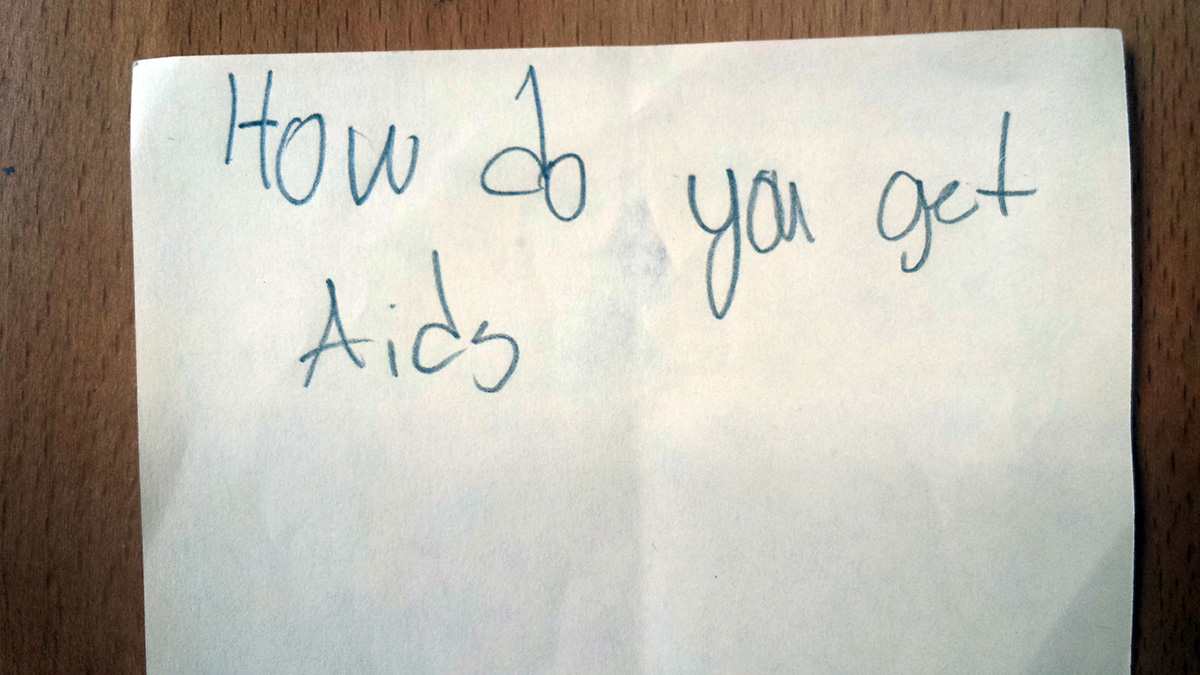 How do you get
Aids